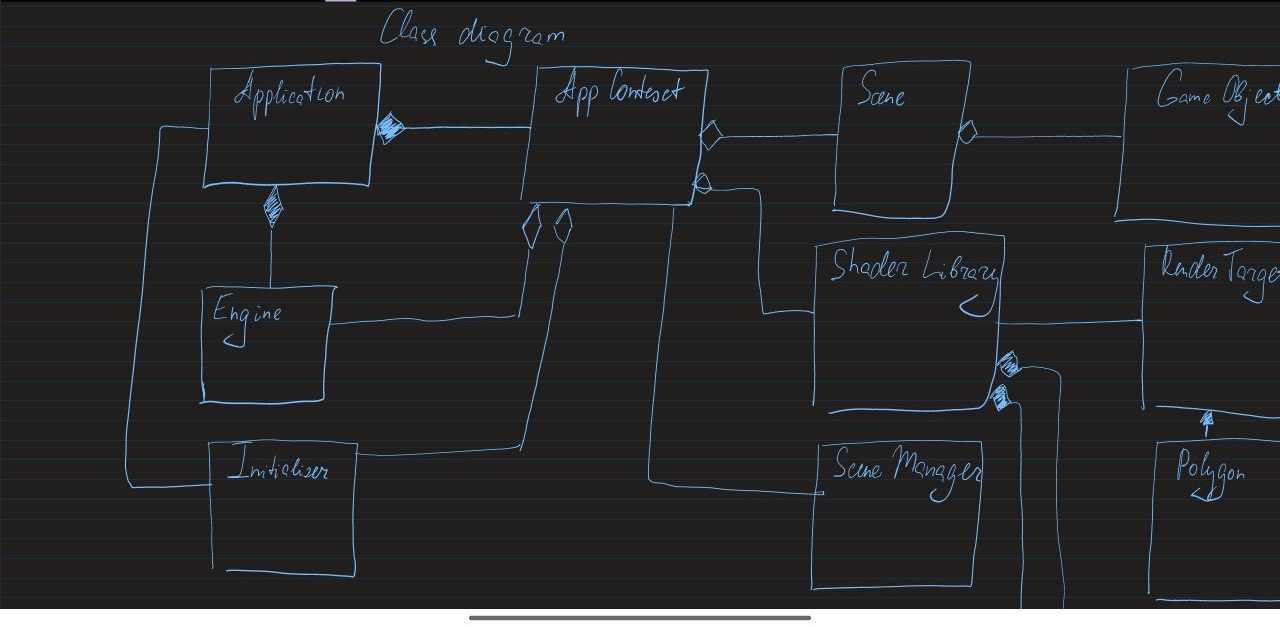 Class diagram
Application
App Context
Scene
Game Object
Shader Library
Render Targe
Engine
Initializer
Scene Manager
Polygon